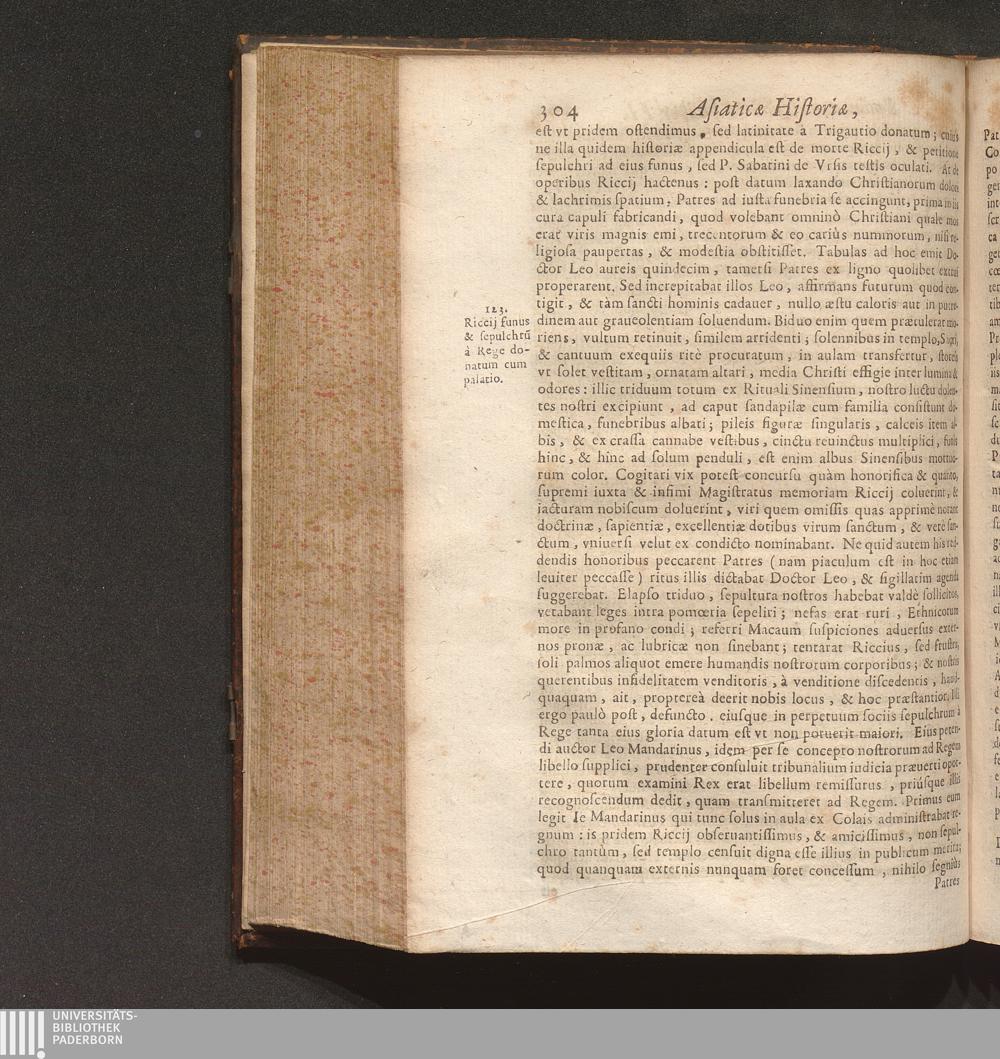 304 Aſiaticæ Hiſtoriæ,
eſt vt pridem oſtendimus, ſed latinitate à Trigautio donatum; cuius
ne illa quidem hiſtoriæ appendicula eſt de morte Riccij, & petitione
ſepulchri ad eius funus, ſed P. Sabatini de Vrſis teſtis oculati. At de
operibus Riccij hactenus: poſt datum laxando Chriſtianorum dolori
& lachrimis ſpatium, Patres ad iuſta funebria ſe accingunt, prima in iis
cura capuli fabricandi, quod volebant omninò Chriſtiani quale mos
erat viris magnis emi, trecentorum & eo cariùs nummorum, niſi re-
ligioſa paupertas, & modeſtia obſtitiſſet. Tabulas ad hoc emit Do-
ctor Leo aureis quindecim, tametſi Patres ex ligno quolibet extrui
properarent. Sed increpitabat illos Leo, affirmans futurum quod con-
tigit, & tàm ſancti hominis cadauer, nullo æſtu caloris aut in putre-
dinem aut graueolentiam ſoluendum. Biduo enim quem prætulerat mo-
riens, vultum retinuit, ſimilem arridenti; ſolennibus in templo, Sacri,
& cantuum exequiis ritè procuratum, in aulam transfertur, ſtoreis
vt ſolet veſtitam, ornatam altari, media Chriſti effigie inter lumina &
odores: illic triduum totum ex Rituali Sinenſium, noſtro luctu dolen-
tes noſtri excipiunt, ad caput ſandapilæ cum familia conſiſtunt do-
meſtica, funebribus albati; pileis figuræ ſingularis, calceis item al-
bis, & ex craſſa cannabe veſtibus, cinctu reuinctus multiplici, funis
hinc, & hinc ad ſolum penduli, eſt enim albus Sinenſibus mortuo-
rum color. Cogitari vix poteſt concurſu quàm honorifica & quanto,
ſupremi iuxta & infimi Magiſtratus memoriam Riccij coluerint, &
iacturam nobiſcum doluerint, viri quem omiſſis quas apprimè norant
doctrinæ, ſapientiæ, excellentiæ dotibus virum ſanctum, & verè ſan-
ctum, vniuerſi velut ex condicto nominabant. Ne quid autem his red-
dendis honoribus peccarent Patres (nam piaculum eſt in hoc etiam
leuiter peccaſſe) ritus illis dictabat Doctor Leo, & ſigillatim agenda
ſuggerebat. Elapſo triduo, ſepultura noſtros habebat valdè ſollicitos,
vetabant leges intra pomœria ſepeliri; nefas erat ruri, Ethnicorum
more in profano condi; referri Macaum ſuſpiciones aduerſus exter-
nos pronæ, ac lubricæ non ſinebant; tentarat Riccius, ſed fruſtra,
ſoli palmos aliquot emere humandis noſtrorum corporibus; & noſtris
querentibus infidelitatem venditoris, à venditione diſcedentis, haud-
quaquam, ait, proptereà deerit nobis locus, & hoc præſtantior. Illi
ergo paulò poſt, defuncto. eiuſque in perpetuum ſociis ſepulchrum à
Rege tanta eius gloria datum eſt vt non potuerit maiori. Eius peten-
di auctor Leo Mandarinus, idem per ſe concepto noſtrorum ad Regem
libello ſupplici, prudenter conſuluit tribunalium iudicia præuerti opor-
tere, quorum examini Rex erat libellum remiſſurus, priúſque illis
recognoſcendum dedit, quam tranſmitteret ad Regem. Primus eum
legit Ie Mandarinus qui tunc ſolus in aula ex Colais adminiſtrabat re-
gnum: is pridem Riccij obſeruantiſſimus, & amiciſſimus, non ſepul-
chro tantùm, ſed templo cenſuit digna eſſe illius in publicum merita;
quod quanquam externis nunquam foret conceſſum, nihilo ſegniùs
Patres
123.
Riccij funus
& ſepulchrũ
à Rege do-
natum cum
palatio.
UNIVERSITÄTS-
BIBLIOTHEK
PADERBORN